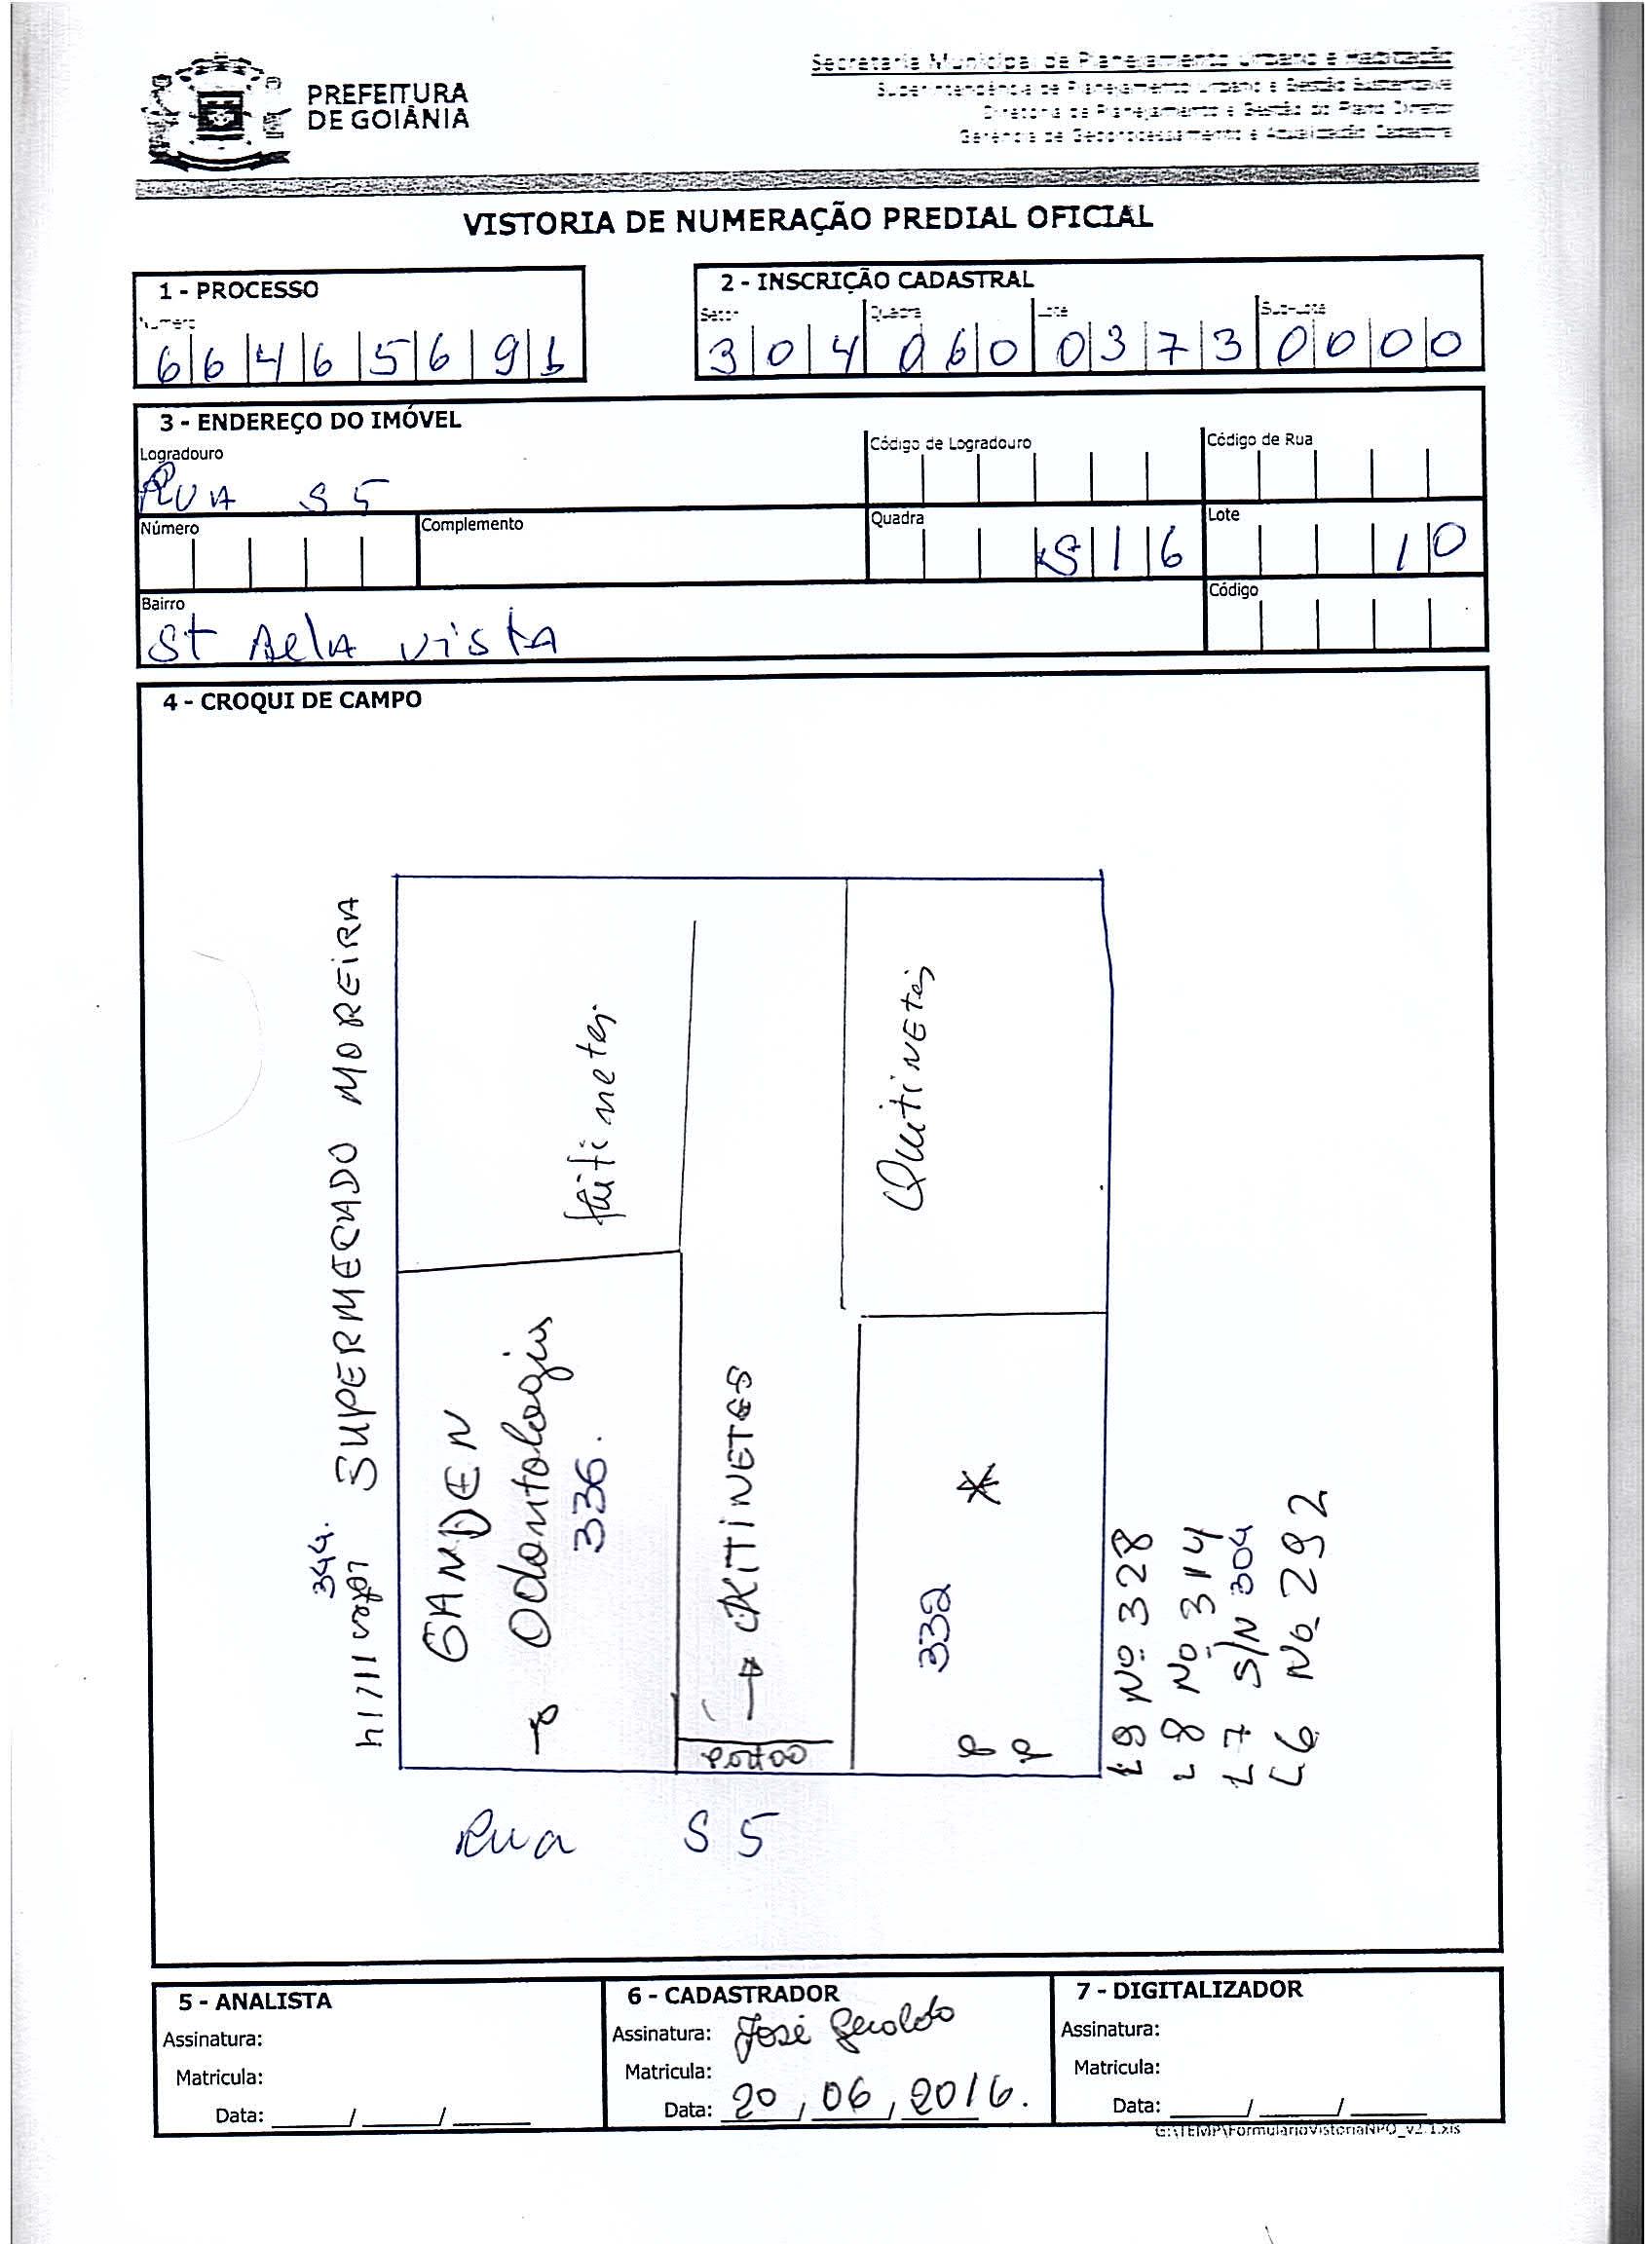 PREFEITURA
DE GOIÂNIA
Secretaria Municipal de Planejamento Urbano e Habitação
Superintendência de Planejamento Urbano e Gestão Sustentável
Diretoria de Planejamento e Gestão do Plano Diretor
Gerência de Geoprocessamento e Atualização Cadastral
VISTORIA DE NUMERAÇÃO PREDIAL OFICIAL
1 - PROCESSO
Número
6 6 4 6 5 6 9 1
2 - INSCRIÇÃO CADASTRAL
Setor Quadra Lote Sub-Lote
3 0 4 0 6 0 0 3 7 3 0 0 0 0
3 - ENDEREÇO DO IMÓVEL
Logradouro Código de Logradouro Código de Rua
RUA S 5
Número Complemento Quadra Lote
S 1 6 1 0
Bairro Código
St Bela Vista
4 - CROQUI DE CAMPO
344.
SUPERMECADO MOREIRA
Kitinetes
Quitinetes
Odontologia
336.
→ KITINETES
332 *
L9 Nº 328
L8 Nº 314
L7 S/N 304
L6 Nº 292
Rua S 5
5 - ANALISTA
Assinatura:
Matricula:
Data: ____/____/____
6 - CADASTRADOR
Assinatura: José Geraldo
Matricula:
Data: 20/06/2016.
7 - DIGITALIZADOR
Assinatura:
Matricula:
Data: ____/____/____
G:\TEMP\FormularioVistoriaNPO_v2.1.xls